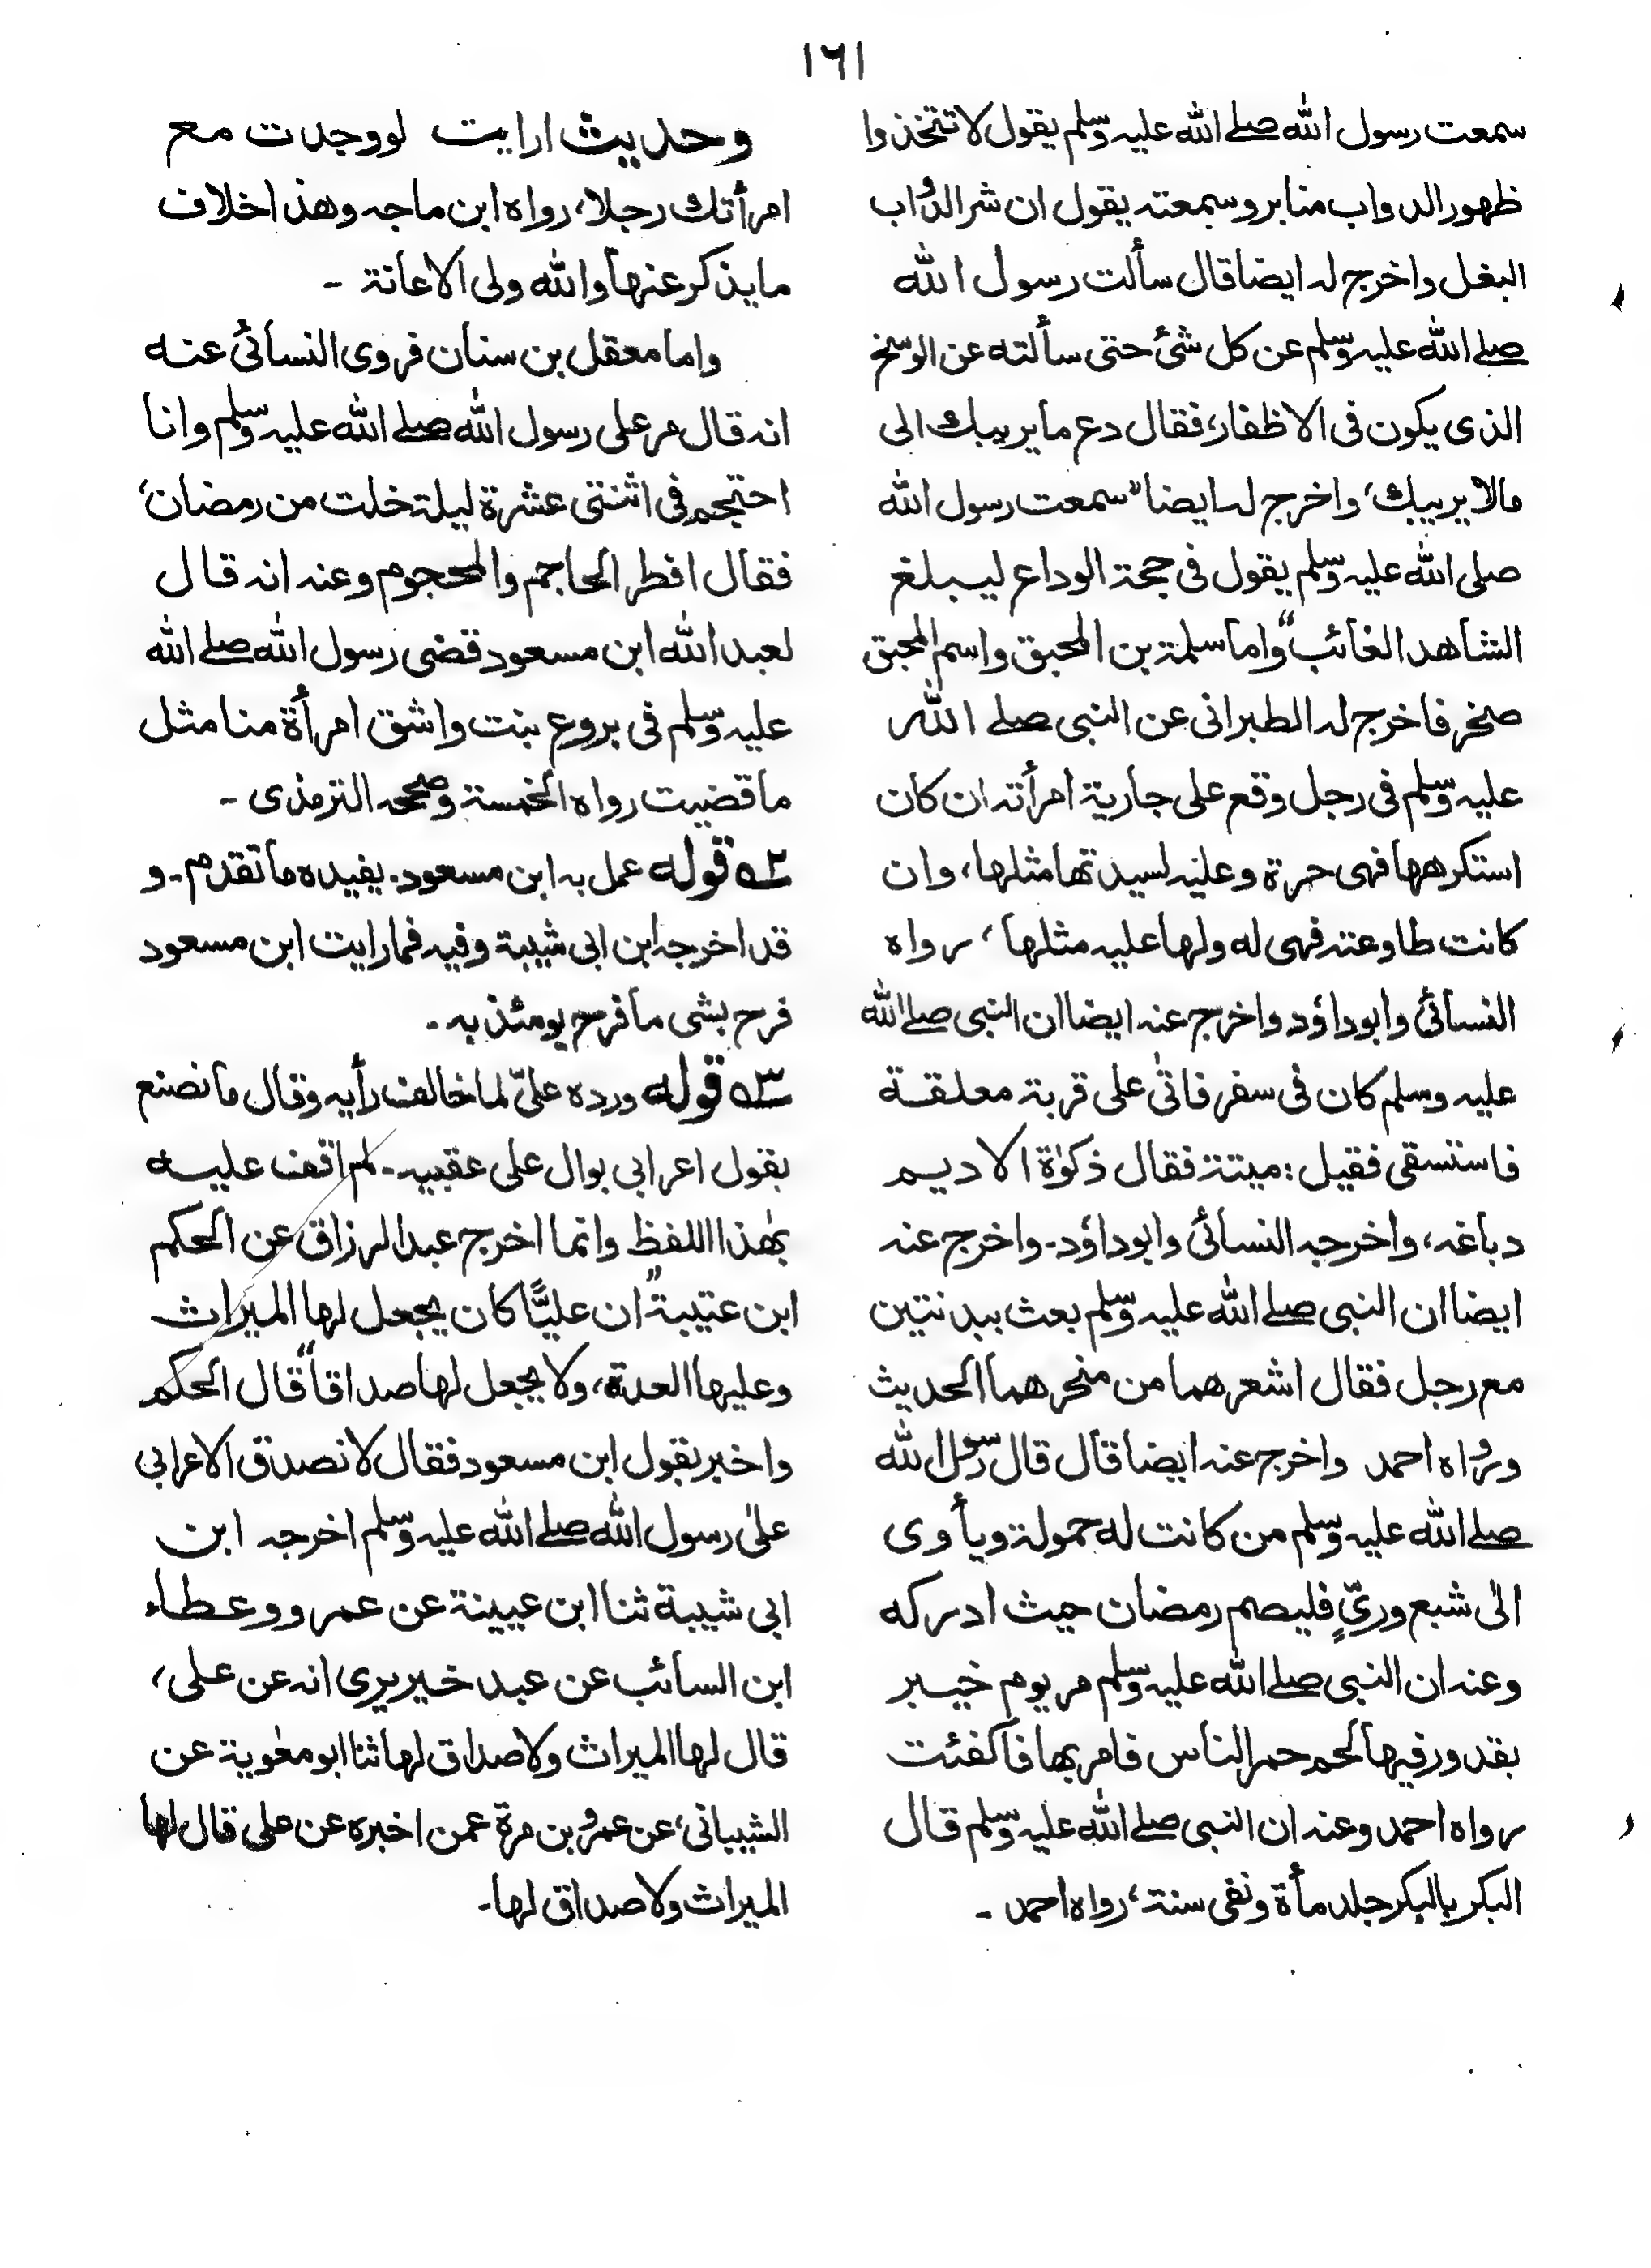 ١٦١
سمعت رسول الله صلے الله عليه وسلم يقول لا تتخذوا
ظهور الدواب منابر وسمعته يقول ان شر الدواب
البغل واخرج له ايضا قال سألت رسول الله
صلے الله عليه وسلم عن كل شئ حتى سألته عن الوسخ
الذى يكون فى الاظفار، فقال دع ما يريبك الى
مالا يريبك، واخرج له ايضا "سمعت رسول الله
صلى الله عليه وسلم يقول فى حجة الوداع ليبلغ
الشاهد الغائب" واما سلمة بن المحبق واسم المحبق
صخر فاخرج له الطبرانى عن النبى صلے الله
عليه وسلم فى رجل وقع على جارية امرأته ان كان
استكرهها فهى حرة وعليه لسيدتها مثلها، وان
كانت طاوعته فهى له ولها عليه مثلها، رواه
النسائى وابوداؤد واخرج عنه ايضا ان النبى صلے الله
عليه وسلم كان فى سفر فاتٰى على قربة معلقة
فاستسقى فقيل: ميتة فقال ذكوٰة الاديم
دباغه، واخرجه النسائى وابوداؤد۔ واخرج عنه
ايضا ان النبى صلے الله عليه وسلم بعث ببدنتين
مع رجل فقال اشعرهما من منحرهما الحديث
ورواه احمد واخرج عنه ايضا قال قال رسول الله
صلے الله عليه وسلم من كانت له حمولة ويأوى
الىٰ شبع ورىٍّ فليصم رمضان حيث ادركه
وعنه ان النبى صلے الله عليه وسلم مر يوم خيبر
بقدور فيها لحم حمر الناس فامر بها فاكفئت
رواه احمد وعنه ان النبى صلے الله عليه وسلم قال
البكر بالبكر جلد مأة ونفى سنة، رواه احمد ۔
وحديث ارايت لو وجدت مع
امرأتك رجلا، رواه ابن ماجه وهذا خلاف
ما يذكر عنها والله ولى الاعانة ۔
واما معقل بن سنان فروى النسائى عنه
انه قال مر على رسول الله صلے الله عليه وسلم وانا
احتجم فى اثنتى عشرة ليلة خلت من رمضان،
فقال افطر الحاجم والمحجوم وعنه انه قال
لعبد الله ابن مسعود قضى رسول الله صلے الله
عليه وسلم فى بروع بنت واشق امرأة منا مثل
ما قضيت رواه الخمسة وصححه الترمذى ۔
٢ـه قوله عمل به ابن مسعود۔ يفيده ما تقدم۔ و
قد اخرجه ابن ابى شيبة وفيه فما رايت ابن مسعود
فرح بشى ما فرح يومئذ به ۔
٣ـه قوله ورده علىّ لما خالف رأيه وقال ما نصنع
بقول اعرابى بوال على عقبيه۔ لم اقف عليه
بهٰذا اللفظ وانما اخرج عبد الرزاق عن الحكم
ابن عتيبة "ان عليًّا كان يجعل لها الميراث
وعليها العدة، ولا يجعل لها صداقا" قال الحكم
واخبر بقول ابن مسعود فقال لا نصدق الاعرابى
علىٰ رسول الله صلے الله عليه وسلم اخرجه ابن
ابى شيبة ثنا ابن عيينة عن عمرو وعطاء
ابن السائب عن عبد خير يرى انه عن على،
قال لها الميراث ولا صداق لها ثنا ابو معٰوية عن
الشيبانى، عن عمرو بن مرة عمن اخبره عن على قال لها
الميراث ولا صداق لها۔